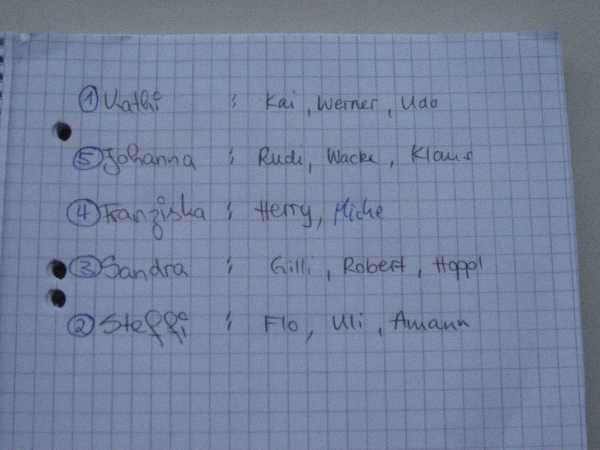 ① Kathi : Kai, Werner, Udo
⑤ Johanna : Rudi, Wacke, Klaus
④ Franziska : Herry, Miche
③ Sandra : Gilli, Robert, Hoppl
② Steffi : Flo, Uli, Amann